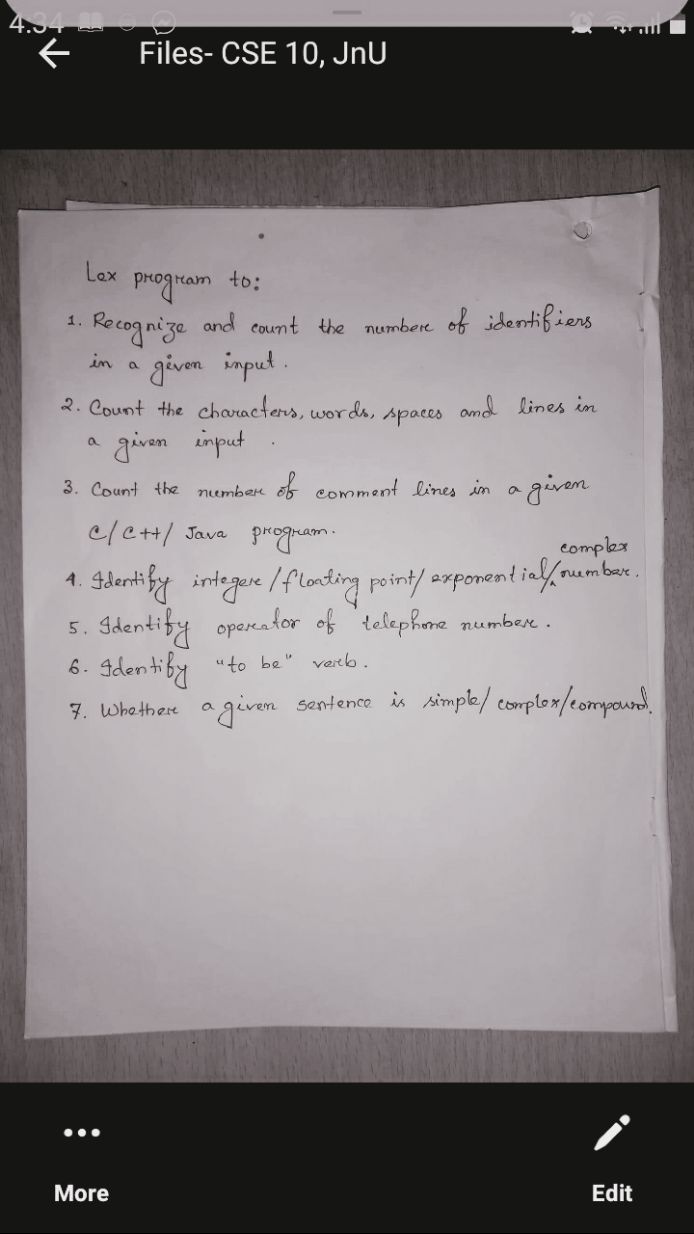 4.34
Files- CSE 10, JnU
Lex program to:
1. Recognize and count the number of identifiers
in a given input.
2. Count the characters, words, spaces and lines in
a given input.
3. Count the number of comment lines in a given
C/C++/ Java program.
complex
4. Identify integer/floating point/exponential/number.
5. Identify operator of telephone number.
6. Identify "to be" verb.
7. Whether a given sentence is simple/complex/compound.
More
Edit